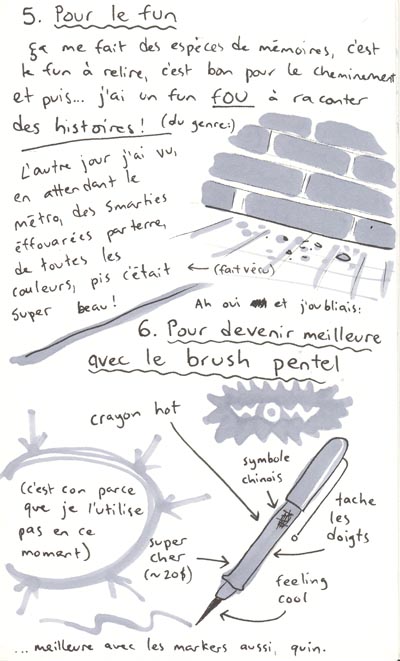 5. Pour le fun
Ça me fait des espèces de mémoires, c'est
le fun à relire, c'est bon pour le cheminement
et puis... j'ai un fun FOU à raconter
des histoires! (du genre:)
L'autre jour j'ai vu,
en attendant le
métro, des Smarties
éffouarées par terre,
de toutes les
couleurs, pis c'était
super beau!
← (fait vécu)
Ah oui et j'oubliais:
6. Pour devenir meilleure
avec le brush pentel
WOW
crayon hot
symbole
chinois
tache
les
doigts
(c'est con parce
que je l'utilise
pas en ce
moment)
super
cher
(~20$)
feeling
cool
...meilleure avec les markers aussi, quin.